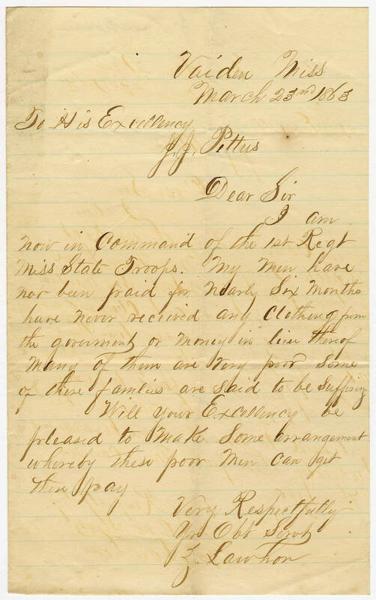 Vaiden Miss
March 23rd 1863
To His Excelancy
J. J. Pettus
Dear Sir
I am
now in Command of the 1st Regt
Miss State Troops. My Men have
not been paid for nearly Six Months
have never received any Clothing from
the goverment or Money in lieu thereof
Many of them are very poor Some
of there families are said to be suffering
Will your Excelancy be
pleased to Make Some arrangement
whereby these poor Men can get
their pay
Very Respectfully
Yr Obt Servt